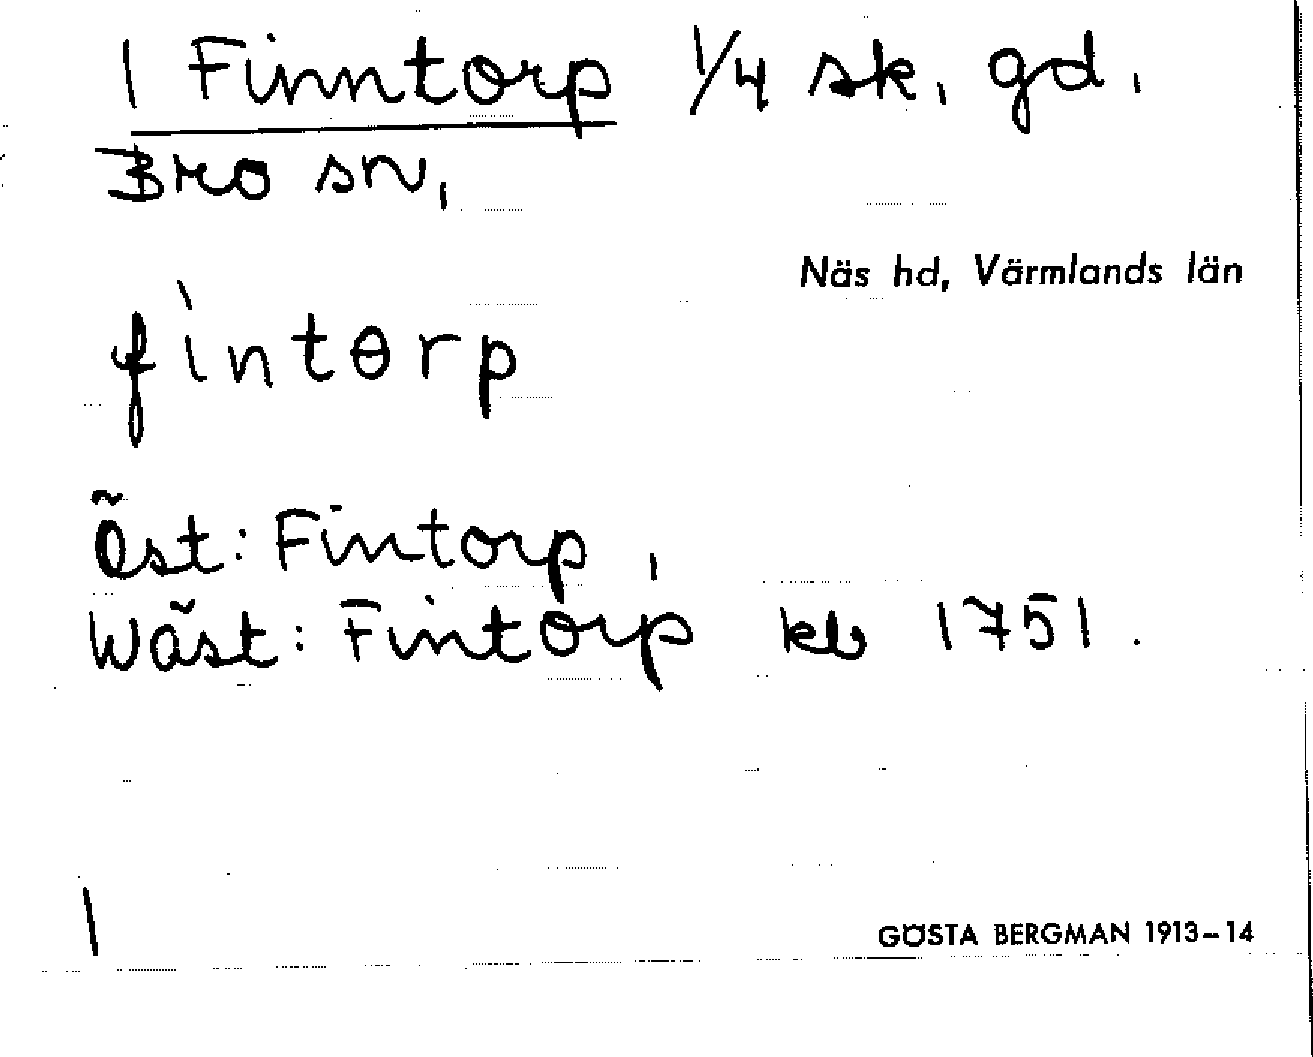 1 Finntorp 1/4 sk. gd.
Bro sn,
Näs hd, Värmlands län
fìntɵrp
Öst: Fintorp,
Wäst: Fintorp kb 1751.
1
GÖSTA BERGMAN 1913–14